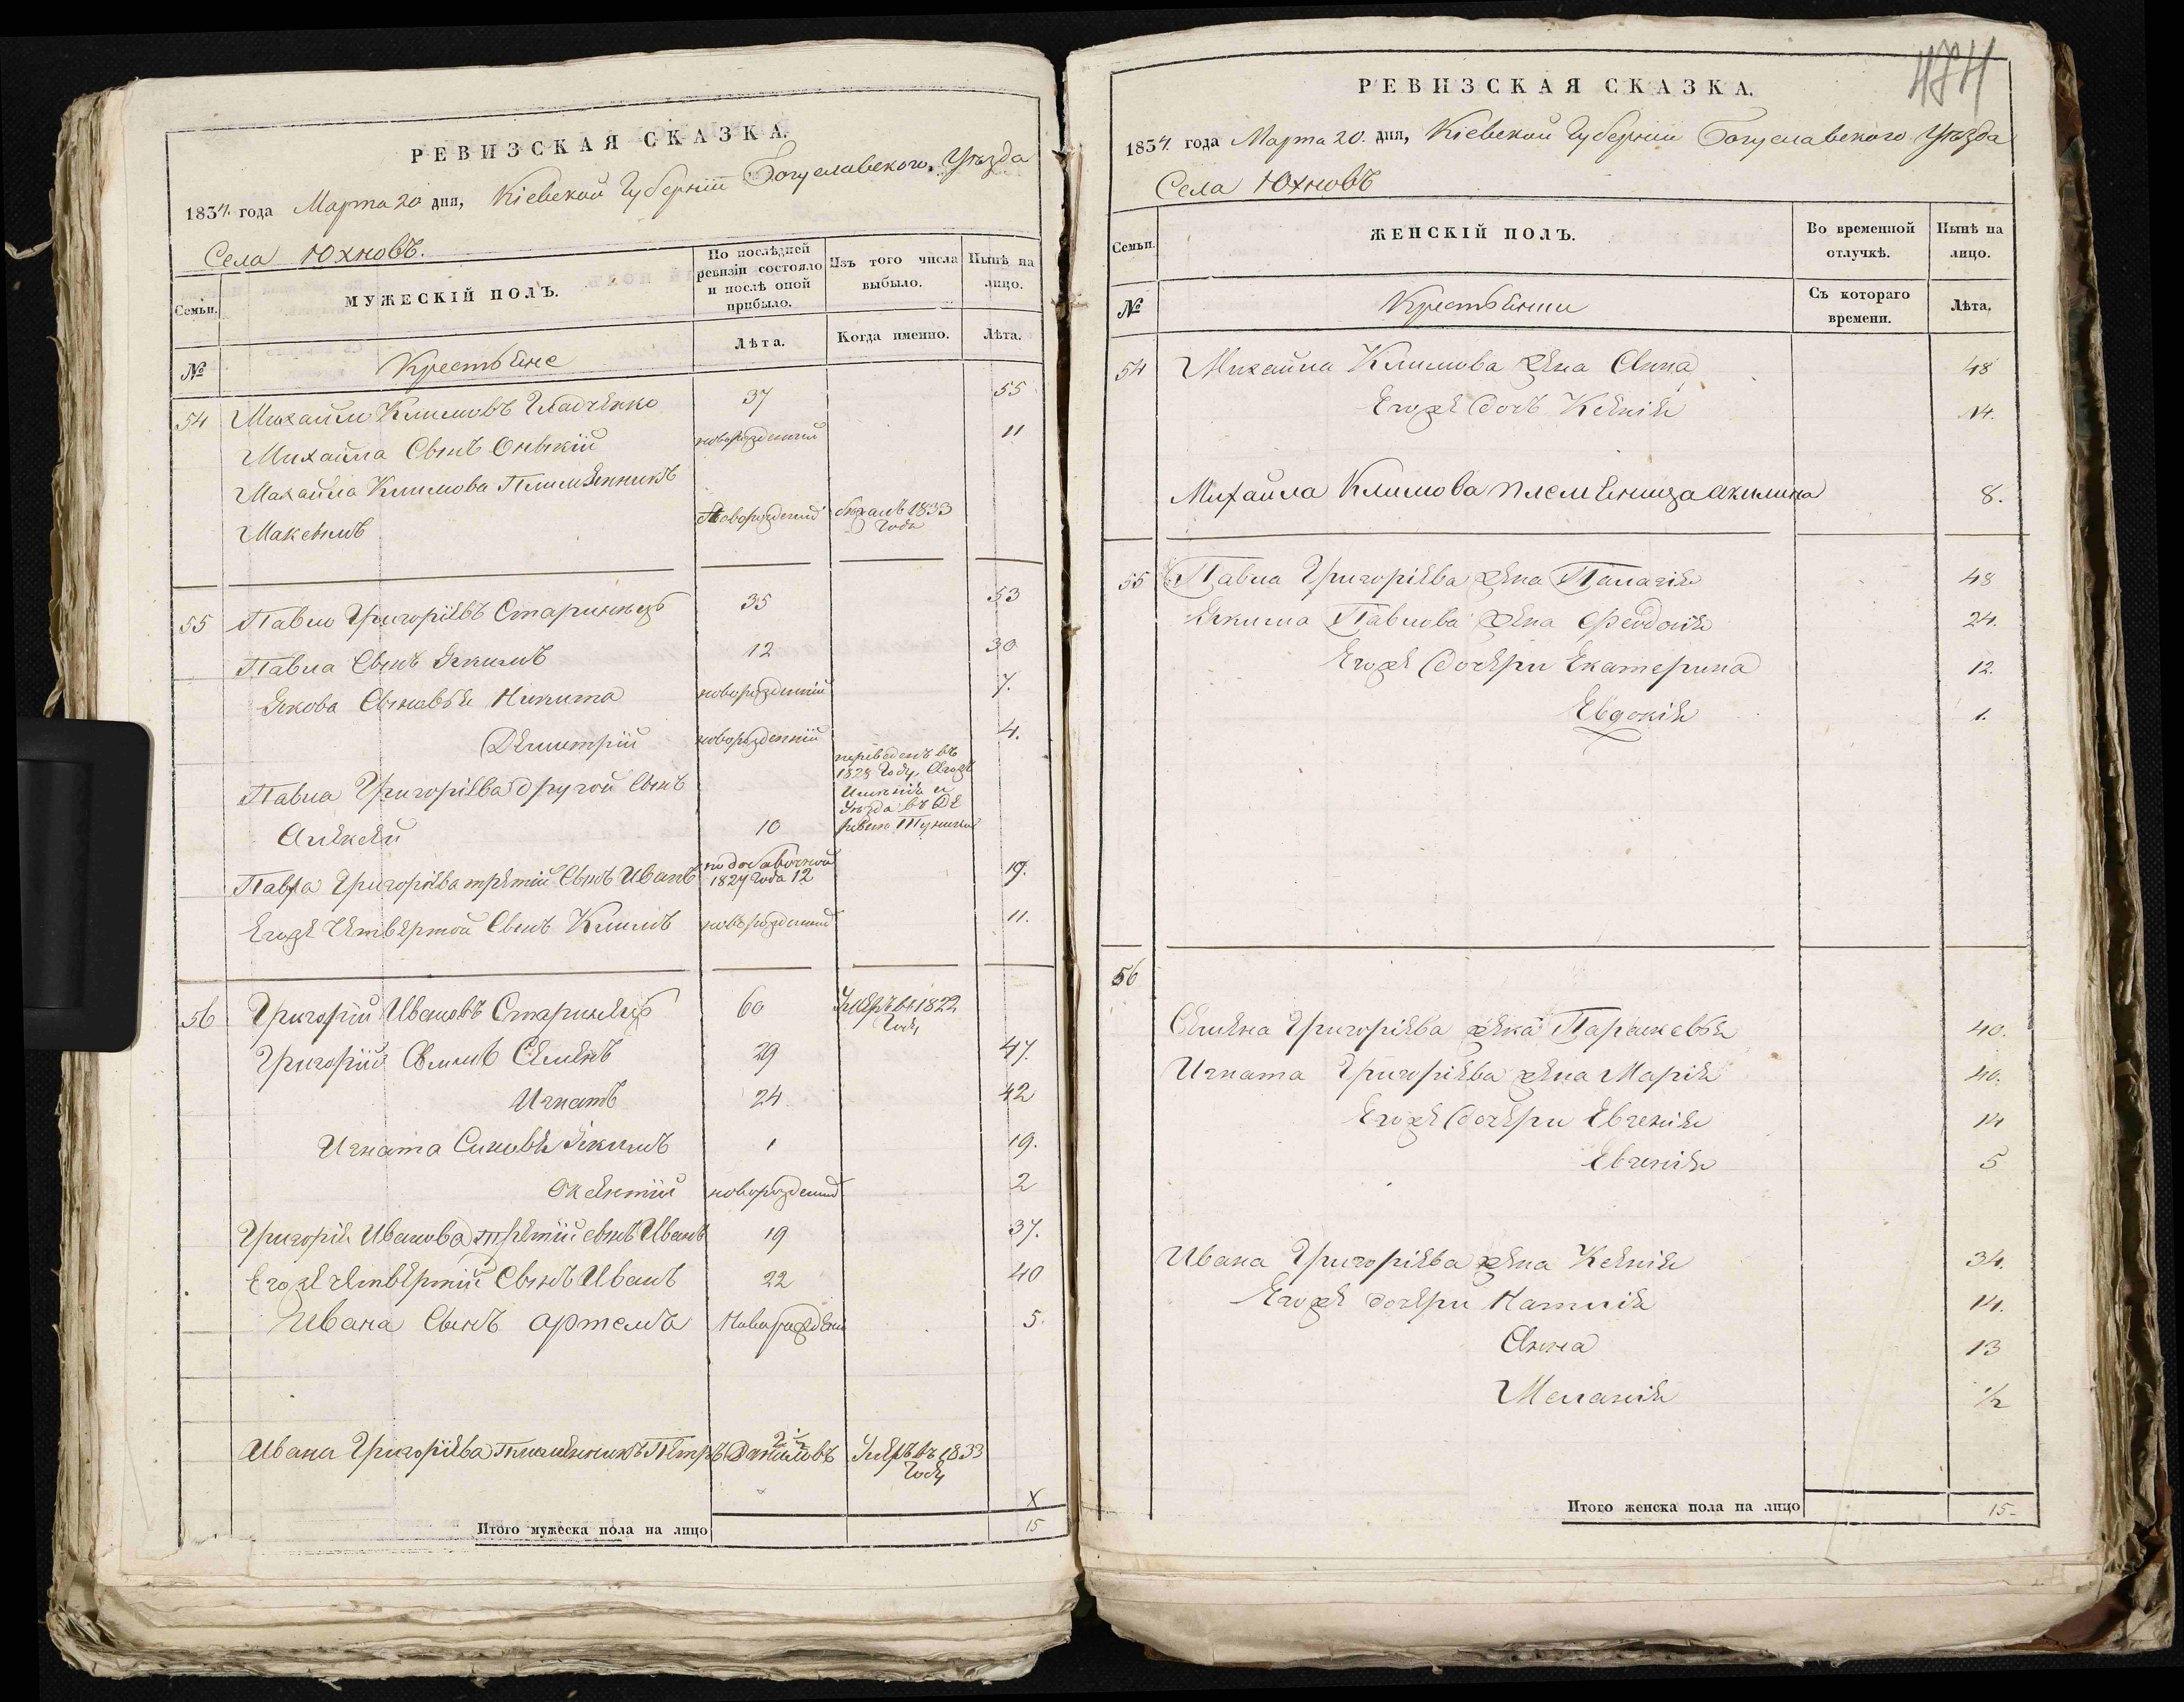 РЕВИЗСКАЯ СКАЗКА.
1834. года Марта 20 дня, Кіевской Губерніи Богуславского Уѣзда
Села Юхновъ.
Семьи.
МУЖЕСКІЙ ПОЛЪ.
По послѣдней ревизіи состояло и послѣ оной прибыло.
Изъ того числа выбыло.
Нынѣ на лицо.
№
Крестьяне
Лѣта.
Когда именно.
Лѣта.
54 Михайло Климовъ Гладченко 37 55
Михайла Сынъ новорожденный 11
Михайла Климова Племянникъ
Максимъ новорожденый 1833 года
55 Павло Григоріевъ Старинецъ 35 53
Павла Сынъ Якимъ 12 30
Якова Сыновья Никита новорожденный 7.
Дмитрій новорожденный 4.
Павла Григоріева другой Сынъ
Алексей 10 переведенъ въ 1828 Году
Павла Григоріева третій Сынъ Иванъ 1827 года 12 19.
Егоже Четвертой Сынъ Климъ новорожденный 11.
56 Григорій Ивановъ Старинецъ 60 Умеръ въ 1822 Году
Григорія Сынъ Семенъ 29 47.
Игнатъ 24 42
Игната Сыновья Якимъ 1 19.
новорожденый 2
Григорія Иванова третій сынъ Иванъ 19 37.
Егоже четвертій Сынъ Иванъ 22 40
Ивана Сынъ Артемъ Новорожден 5.
Ивана Григоріева Племянникъ Петръ Умеръ въ 1833 Году
X
Итого мужеска пола на лицо 15
РЕВИЗСКАЯ СКАЗКА.
1834. года Марта 20. дня, Кіевской Губерніи Богуславского Уѣзда
Села Юхновъ
Семьи.
ЖЕНСКІЙ ПОЛЪ.
Во временной отлучкѣ.
Нынѣ на лицо.
№
Крестьянки
Съ котораго времени.
Лѣта.
54 Михайла Климова жена Анна 48
Егоже дочь Ксенія 14.
Михайла Климова племеница Акилина 8.
55 Павла Григоріева жена Палагія 48
Якима Павлова жена Феодосія 24.
Егоже дочери Екатерина 12.
Евдокія 1.
56
Семена Григоріева жена Параскевья 40.
Игната Григоріева жена Марія 40.
Егоже дочери Евгенія 14
Евгенія 5
Ивана Григоріева жена Ксенія 34.
Егоже дочери Наталія 14.
Анна 13
Меланія 1/2
Итого женска пола на лицо 15-